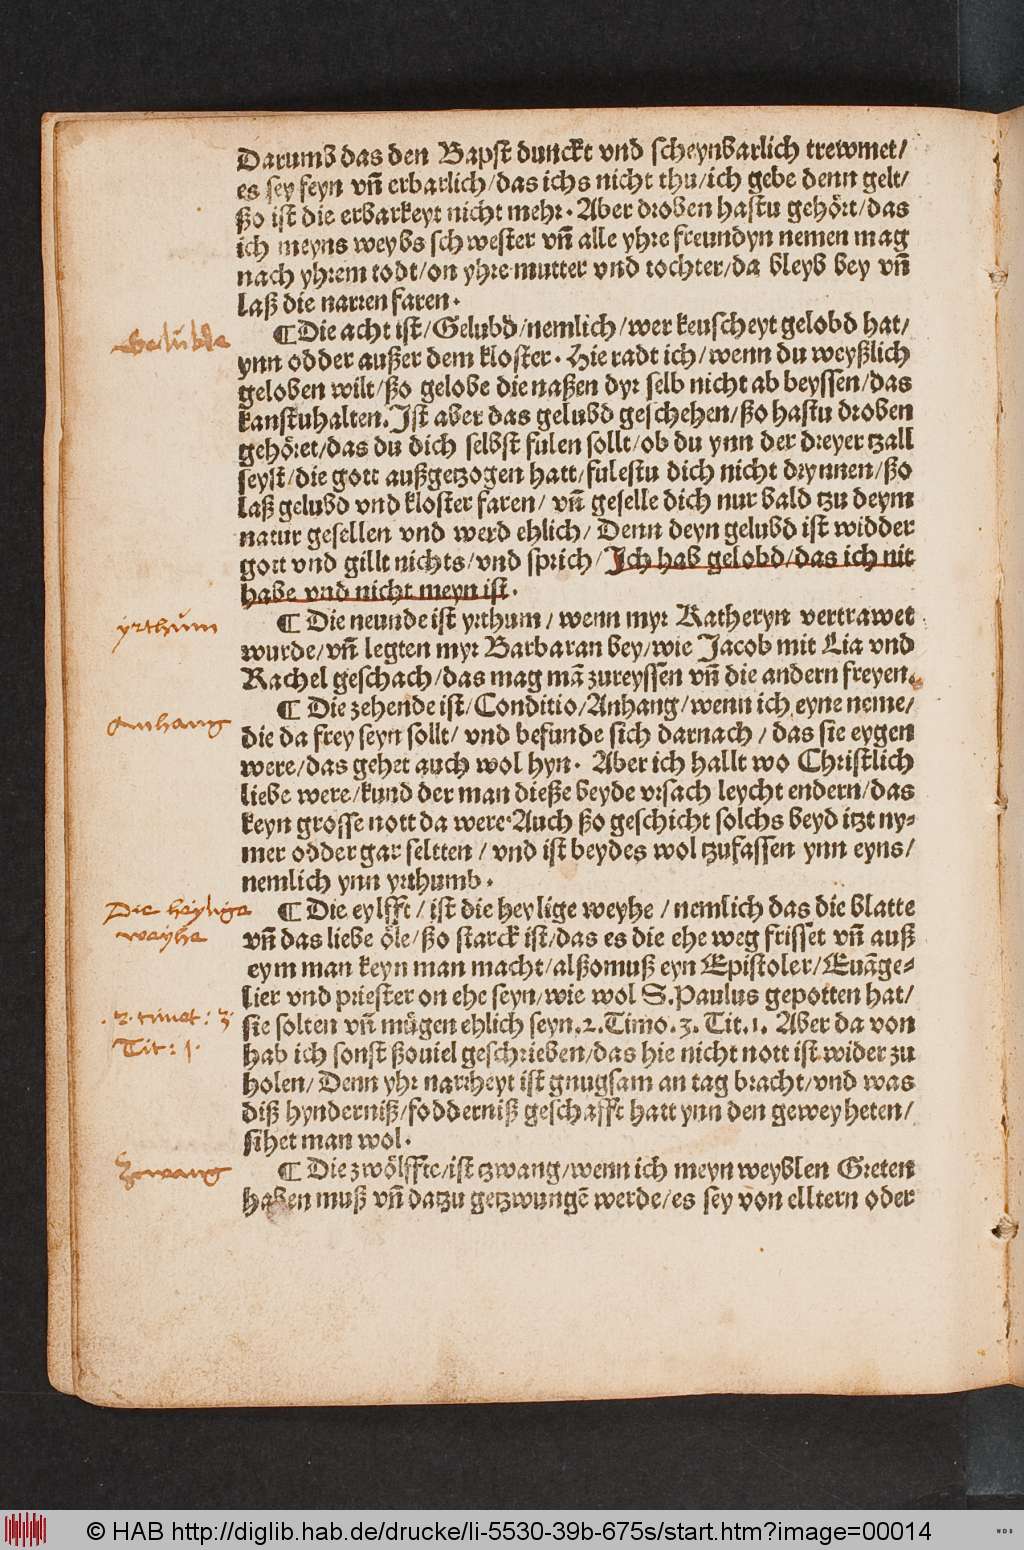 Darumb das den Bapst dunckt vnd scheynbarlich trewmet/
es sey feyn vn̄ erbarlich/das ichs nicht thu/ich gebe denn gelt/
ßo ist die erbarkeyt nicht mehr. Aber droben hastu gehört/das
ich meyns weybs schwester vn̄ alle yhre freundyn nemen mag
nach yhrem todt/on yhre mutter vnd tochter/da bleyb bey vn̄
laß die narren faren.
Gelubde
¶ Die acht ist/Gelubd/nemlich/wer keuscheyt gelobd hat/
ynn odder außer dem kloster. Hie radt ich/wenn du weyßlich
geloben wilt/ßo gelobe die naßen dyr selb nicht ab beyssen/das
kanstu halten. Ist aber das gelubd geschehen/ßo hastu droben
gehöret/das du dich selbst fulen sollt/ob du ynn der dreyer tzall
seyst/die gott außgetzogen hatt/fulestu dich nicht drynnen/ßo
laß gelubd vnd kloster faren/ vn̄ geselle dich nur bald tzu deym
natur gesellen vnd werd ehlich/ Denn deyn gelubd ist widder
gott vnd gillt nichts/vnd sprich/Ich hab gelobd/das ich nit
habe vnd nicht meyn ist.
yrthum
¶ Die neunde ist yrthum/ wenn myr Katheryn vertrawet
wurde/vn̄ legten myr Barbaran bey/wie Jacob mit Lia vnd
Rachel geschach/das mag mā zureyssen vn̄ die andern freyen.
Anhang
¶ Die zehende ist/Conditio/Anhang/wenn ich eyne neme/
die da frey seyn sollt/ vnd befunde sich darnach/ das sie eygen
were/das gehet auch wol hyn. Aber ich hallt wo Christlich
liebe were/kund der man dieße beyde vrsach leycht endern/das
keyn grosse nott da were. Auch ßo geschicht solchs beyd itzt ny-
mer odder gar seltten/ vnd ist beydes wol tzufassen ynn eyns/
nemlich ynn yrthumb.
Die heylige
weyhe
¶ Die eylfft/ ist die heylige weyhe/ nemlich das die blatte
vn̄ das liebe öle/ßo starck ist/das es die ehe weg frisset vn̄ auß
eym man keyn man macht/alßo muß eyn Epistoler/Euāge-
lier vnd priester on ehe seyn/wie wol S. Paulus gepotten hat/
.2. timot: 3.
sie solten vn̄ mügen ehlich seyn.2. Timo. 3. Tit. 1. Aber da von
Tit: 1.
hab ich sonst ßouiel geschrieben/das hie nicht nott ist wider zu
holen/ Denn yhr narrheyt ist gnugsam an tag bracht/vnd was
diß hynderniß/fodderniß geschafft hatt ynn den geweyheten/
sihet man wol.
Zwang
¶ Die zwölffte/ist tzwang/wenn ich meyn weyblen Greten
haben muß vn̄ datzu getzwungē werde/es sey von elltern oder
© HAB http://diglib.hab.de/drucke/li-5530-39b-675s/start.htm?image=00014